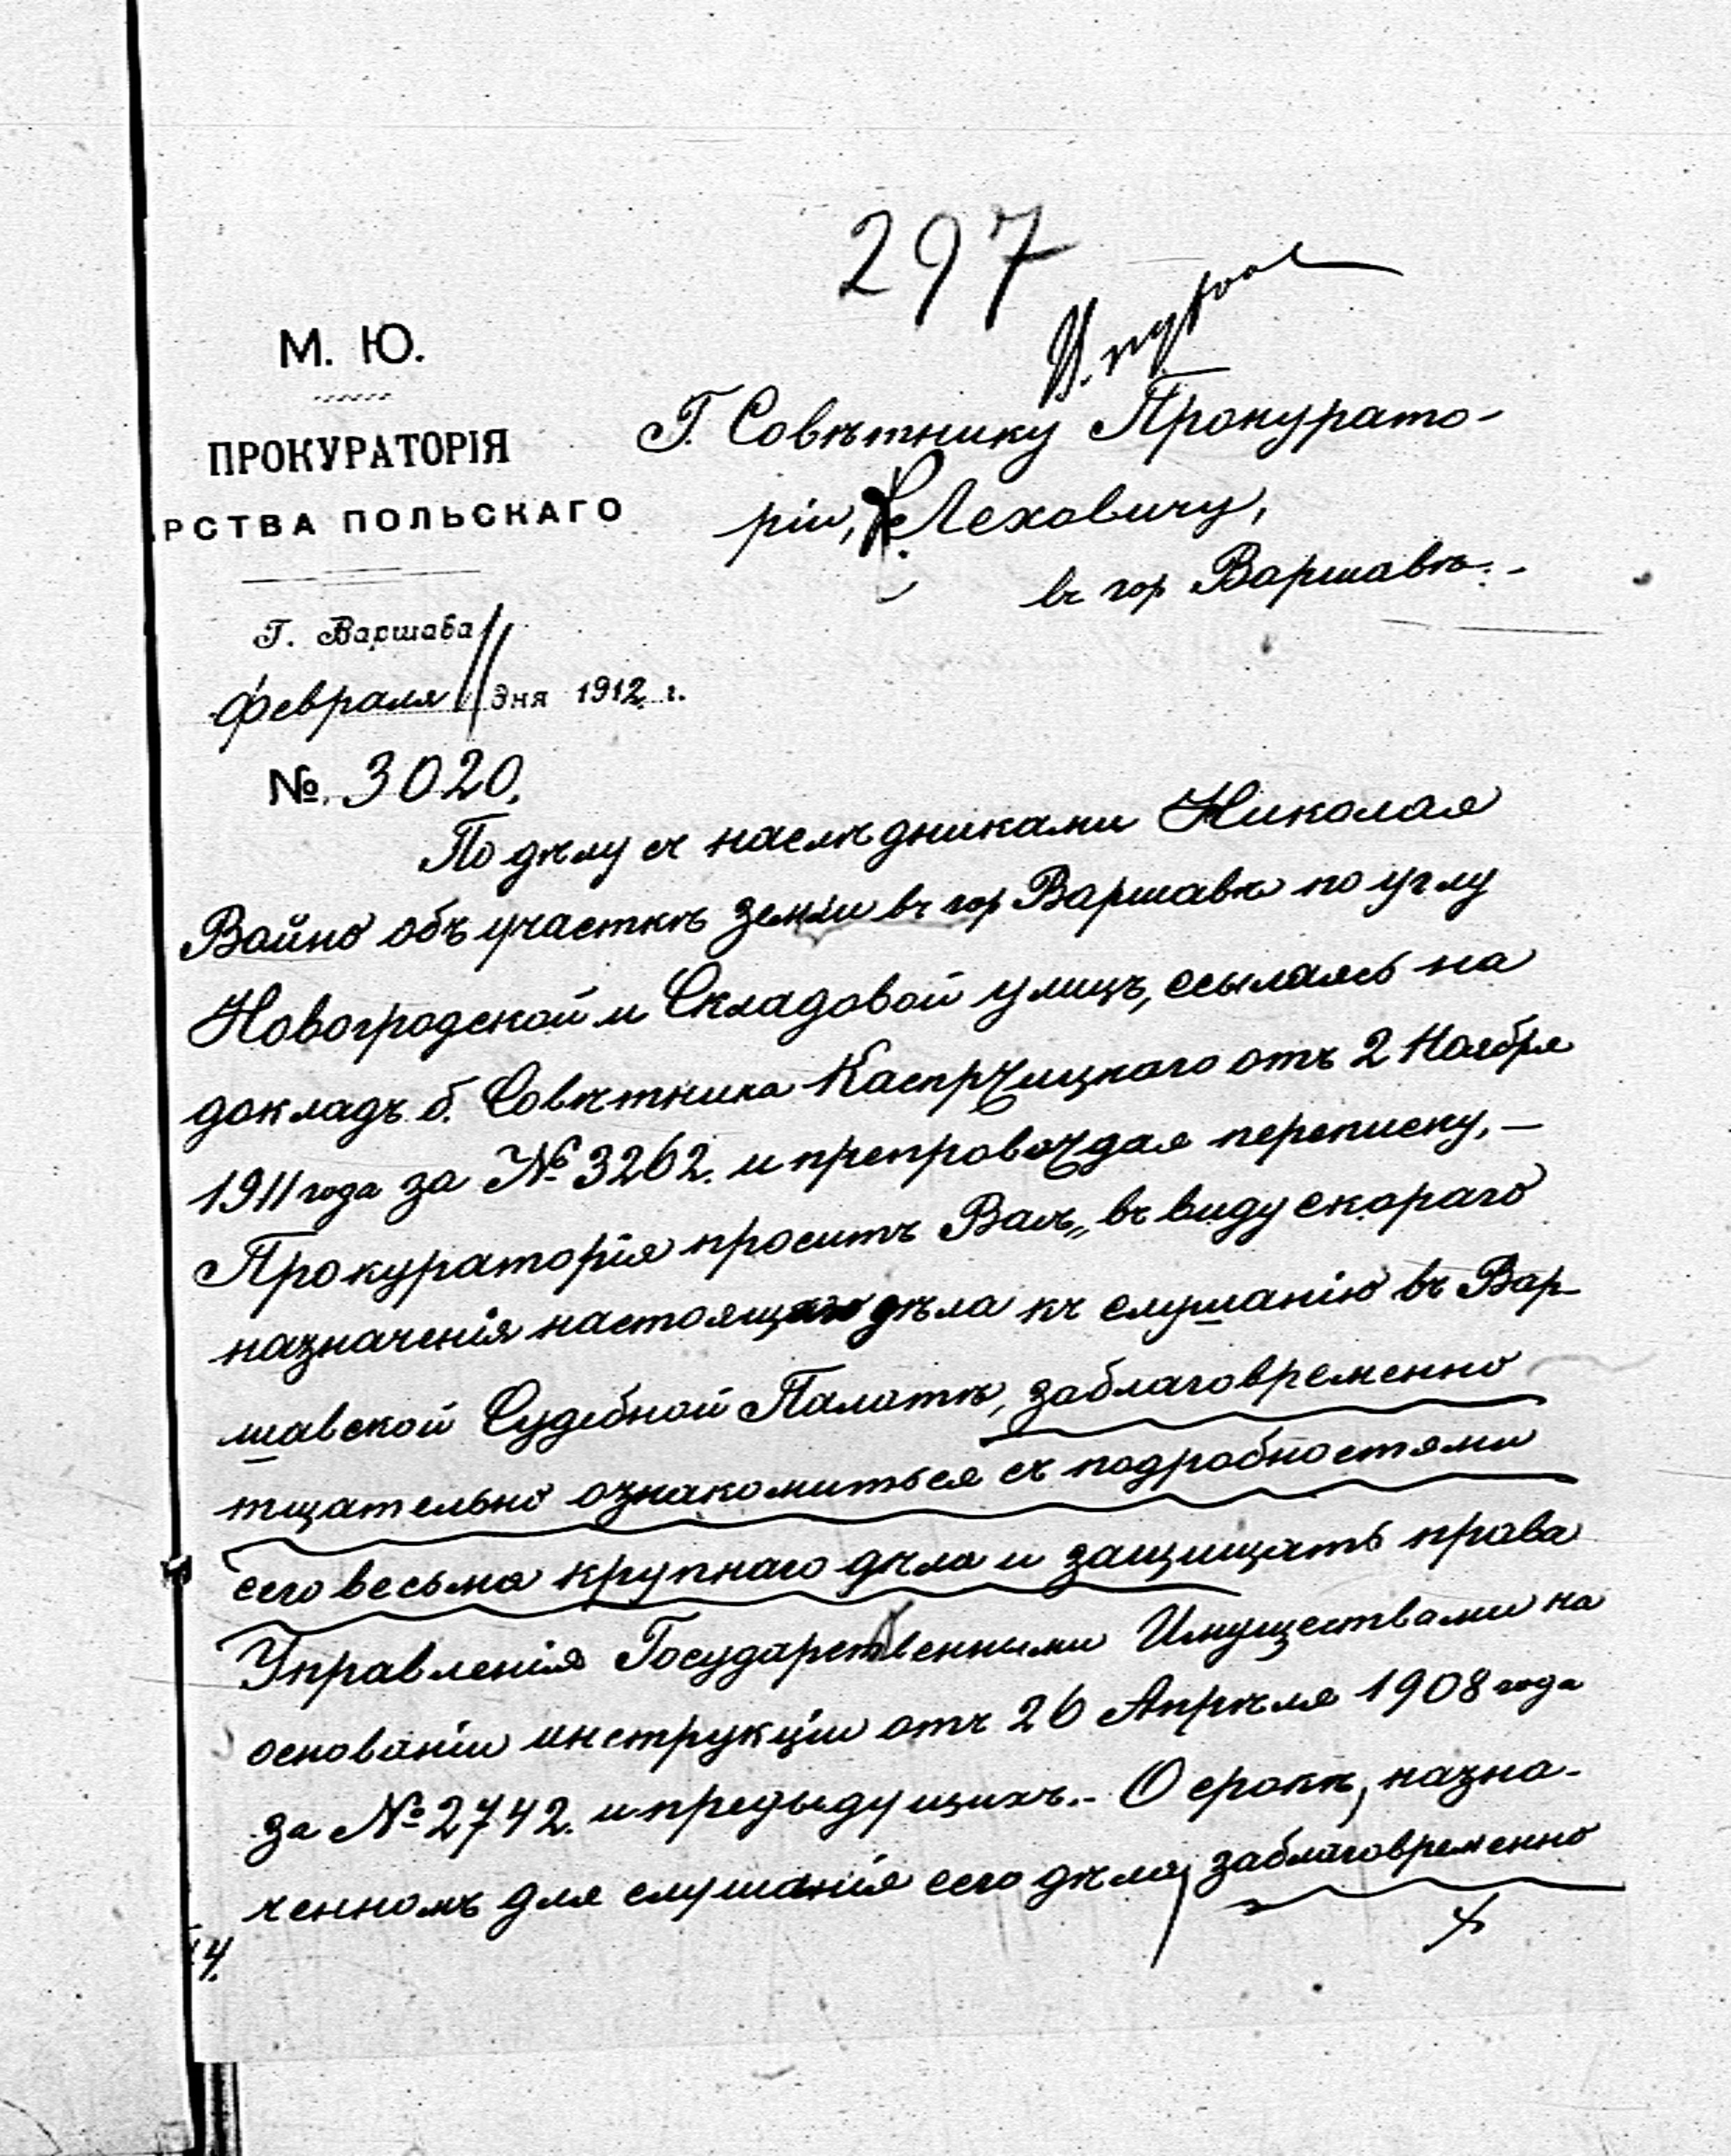 297
М. Ю.
ПРОКУРАТОРІЯ
РСТВА ПОЛЬСКАГО
Г. Варшава
Февраля 11 дня 1912 г.
№ 3020.
Г. Совѣтнику Прокурато-
ріи, Леховичу,
въ гор Варшавѣ.-
По дѣлу съ наслѣдниками Николая
Войно объ участкѣ земли въ гор Варшавѣ по углу
Новогродской и Складовой улицъ, ссылаясь на
докладъ б. Совѣтника Каспржицкаго отъ 2 Ноября
1911 года за № 3262. и препровождая переписку, —
Прокураторія проситъ Васъ, въ виду скораго
назначенія настоящаго дѣла къ слушанію въ Вар-
шавской Судебной Палатѣ, заблаговременно
тщательно ознакомиться съ подробностями
сего весьма крупнаго дѣла и защищать права
Управленія Государственными Имуществами на
основаніи инструкціи отъ 26 Апрѣля 1908 года
за № 2742. и предыдущихъ.- О срокѣ, назна-
ченномъ для слушанія сего дѣла, заблаговременно
14.